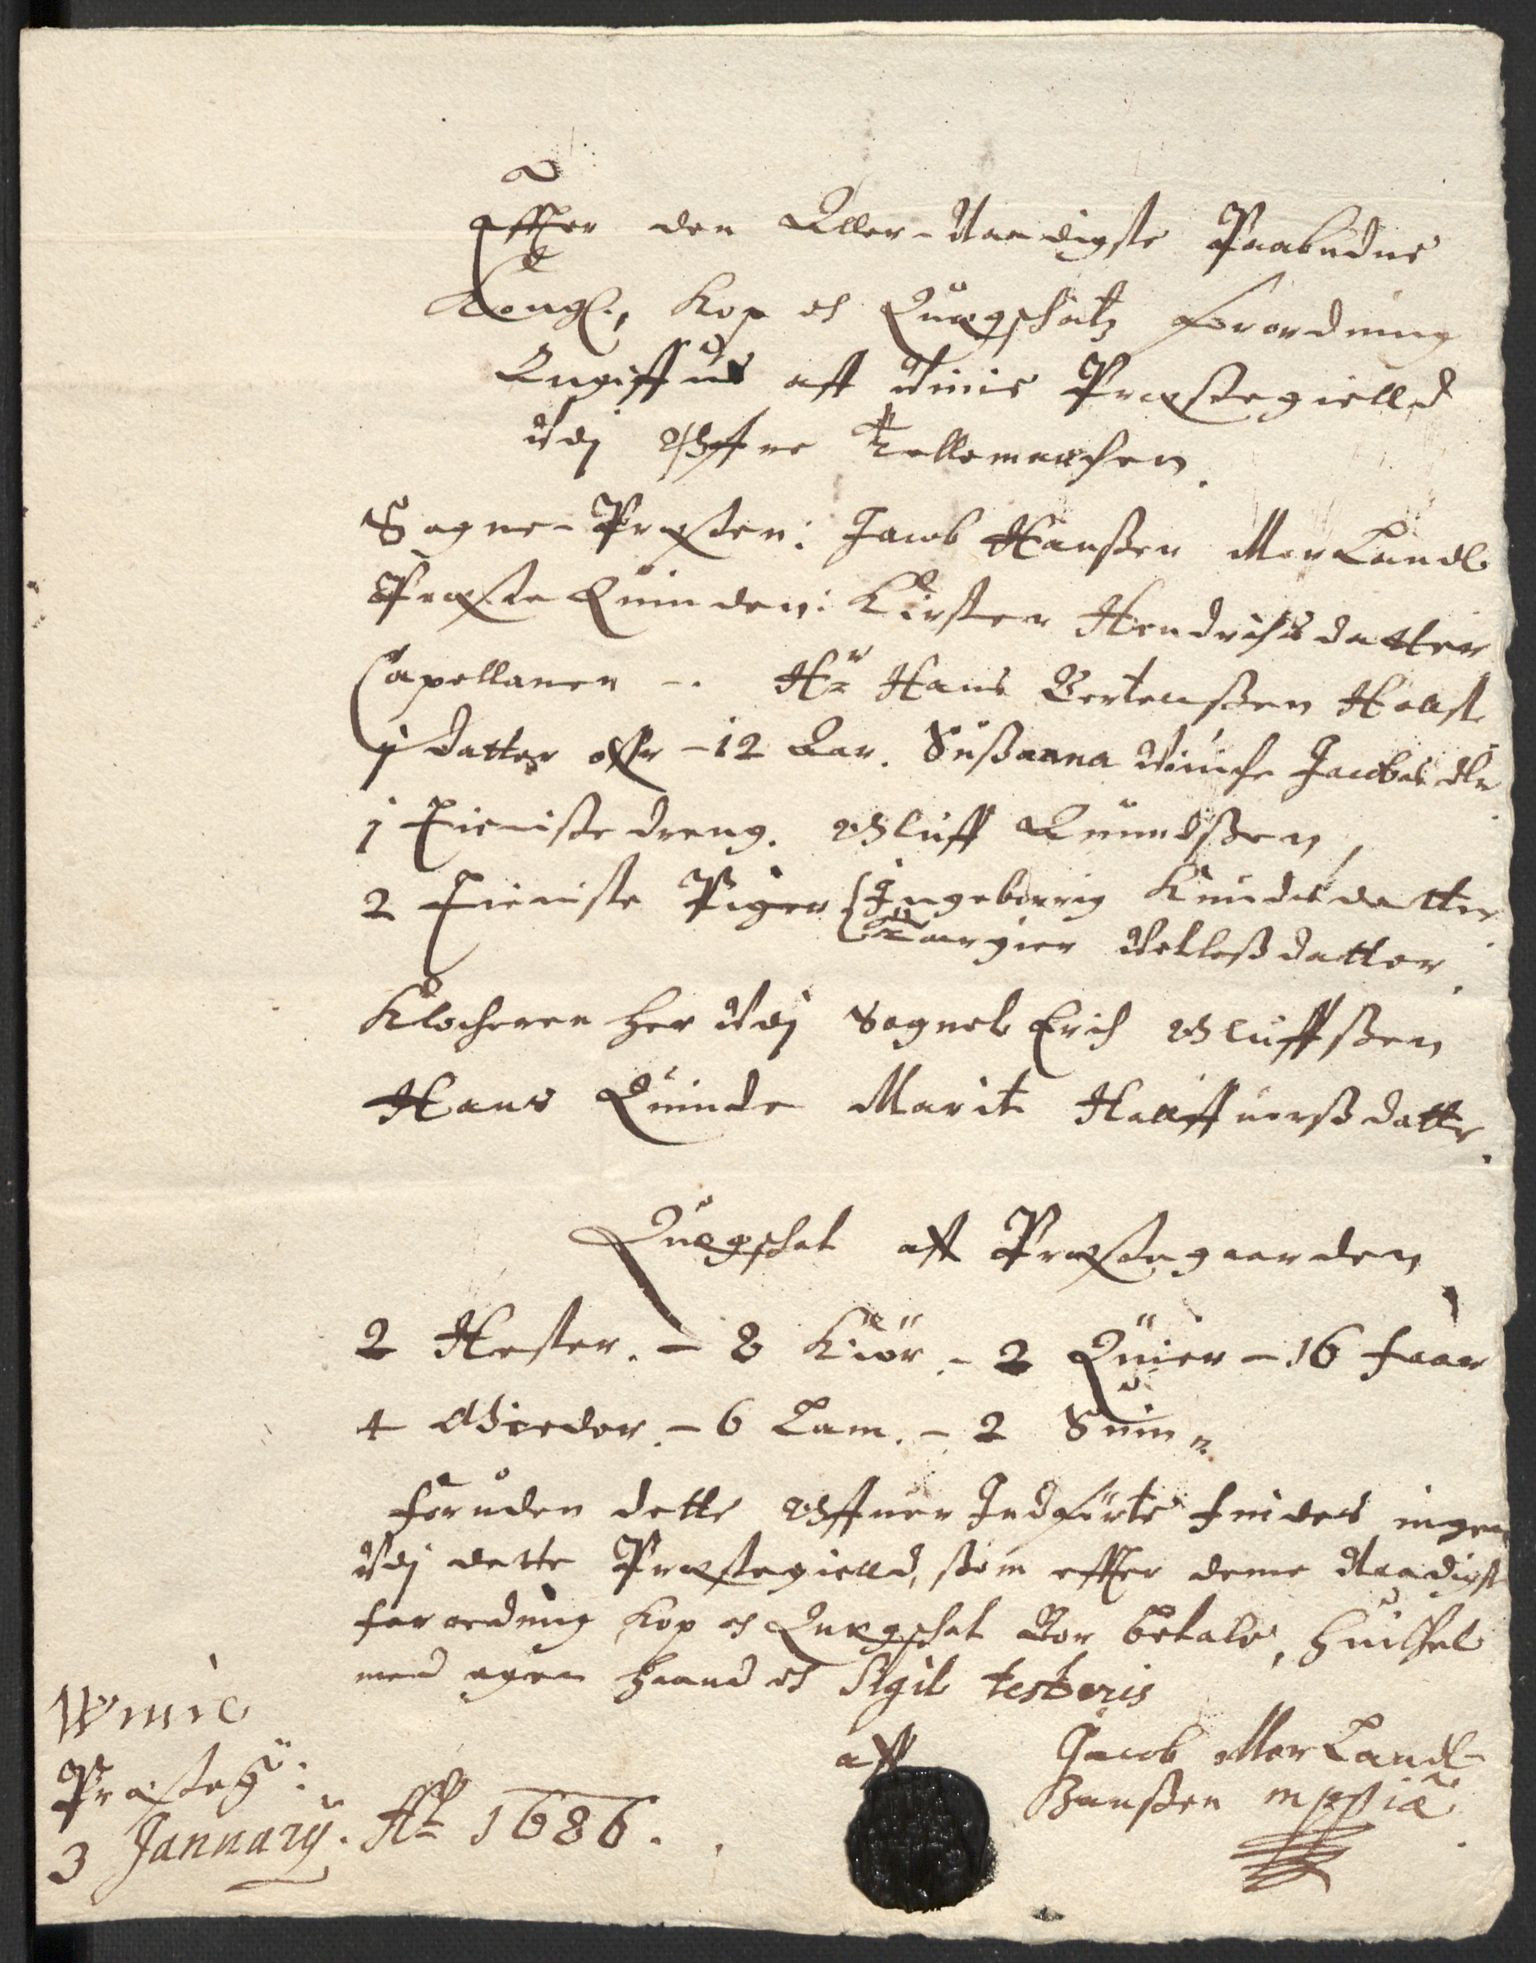 Effter den Aller-Naadigste Paabudne
Kongl., Kop och Quægschatz forordning
Angiffues aff Winie Præstegielld
Udj Øffre Tellemarchen.
Sogne-Præsten: Jacob Hanßen MorLandt
Præste Quinden: Kirsten Hendrichsdatter
Capellanen -. Hr Hans Bertelßen Holst
1 datter offr - 12 Aar. Sußanna Winche Jacobsdtr
1 Tieniste dreng. Oluff Amundßen,
2 Tieniste Piger Ingeborrig Knudsdatter
Targier Wetleßdatter.
Klocheren her Udj Sognet Erich Oluffßen
Hans Quinde Marit Hallffuerßdatter.
Quægschat aff Præstegaarden
2 Hester. - 8 Kiör - 2 Quier - 16 faar
4 Gieder. - 6 Lam. - 2 Suin
foruden dette Offuer Indførte findes ingen
Udj dette Præstegielld, som effter denne Naadigst
forordning kop och Quægschat Bør betale, huilchet
med egen Haand och Sigil testeris
aff Jacob MorLandt
Hanßen mppia
Winie
Præsteg:
3 January. Ao 1686.